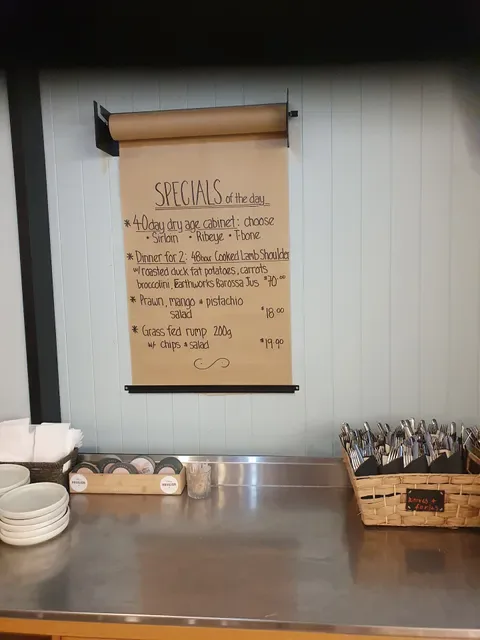 SPECIALS of the day
* 40day dry age cabinet: choose
• Sirloin • Ribeye • T-bone
* Dinner for 2: 48hour Cooked Lamb Shoulder
w/ roasted duck fat potatoes, carrots
broccolini, Earthworks Barossa Jus $70.00
* Prawn, mango + pistachio
salad $18.00
* Grass fed rump 200g
w/ chips + salad $19.90
knives +
forks